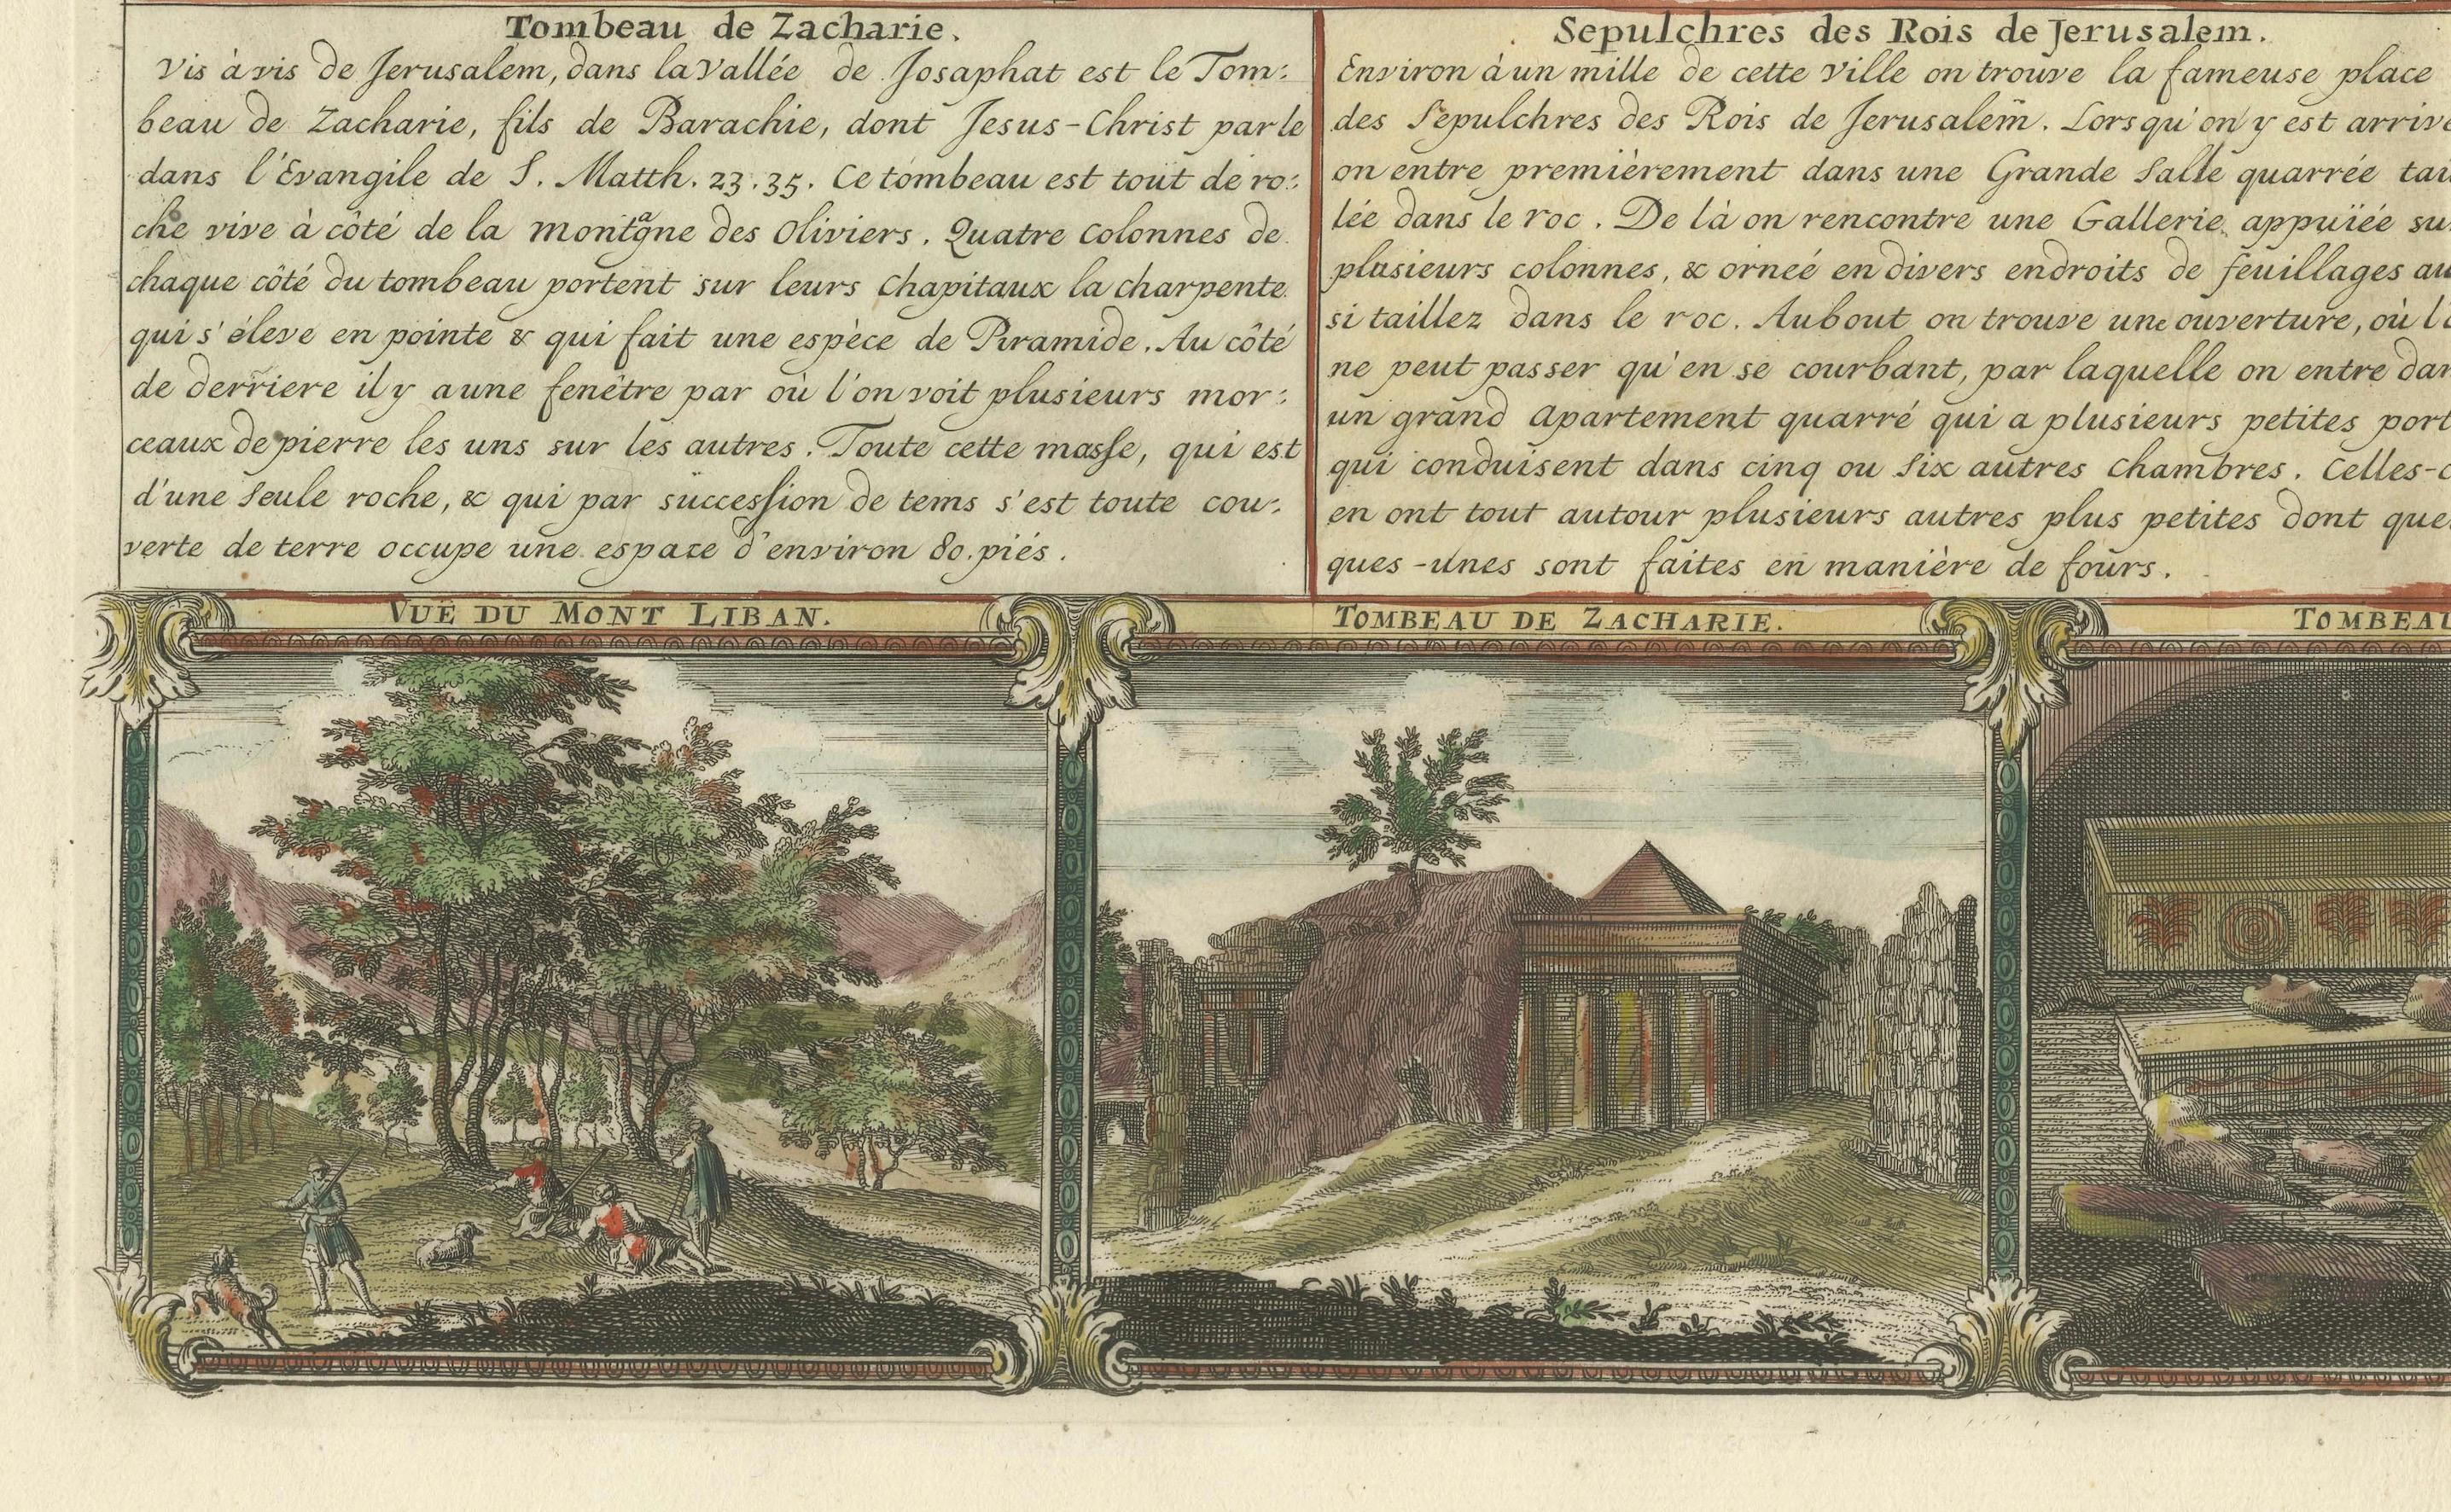 Tombeau de Zacharie.
Vis à vis de Jerusalem, dans la Vallée de Josaphat est le Tom:
beau de Zacharie, fils de Barachie, dont Jesus-Christ parle
dans l'Evangile de S. Matth. 23. 35. Ce tombeau est tout de ro:
che vive à côté de la montagne des Oliviers. Quatre Colonnes de
chaque côté du tombeau portent sur leurs Chapitaux la charpente
qui s'éleve en pointe & qui fait une espèce de Piramide. Au côté
de derriere il y a une fenêtre par où l'on voit plusieurs mor:
ceaux de pierre les uns sur les autres. Toute cette masse, qui est
d'une seule roche, & qui par succession de tems s'est toute cou:
verte de terre occupe une espace d'environ 80. piés.
Sepulchres des Rois de Jerusalem.
Environ à un mille de cette Ville on trouve la fameuse place
des Sepulchres des Rois de Jerusalem. Lorsqu'on y est arrivé
on entre premièrement dans une Grande Salle quarrée tai
lée dans le roc. De là on rencontre une Gallerie appuïée su
plusieurs colonnes, & orneé en divers endroits de feuillages au
si taillez dans le roc. Au bout on trouve une ouverture, où l'o
ne peut passer qu'en se courbant, par laquelle on entre dan
un grand Apartement quarré qui a plusieurs petites port
qui conduisent dans cinq ou six autres Chambres. Celles-c
en ont tout autour plusieurs autres plus petites dont que
ques-unes sont faites en manière de fours.
VUË DU MONT LIBAN.
TOMBEAU DE ZACHARIE.
TOMBEAU